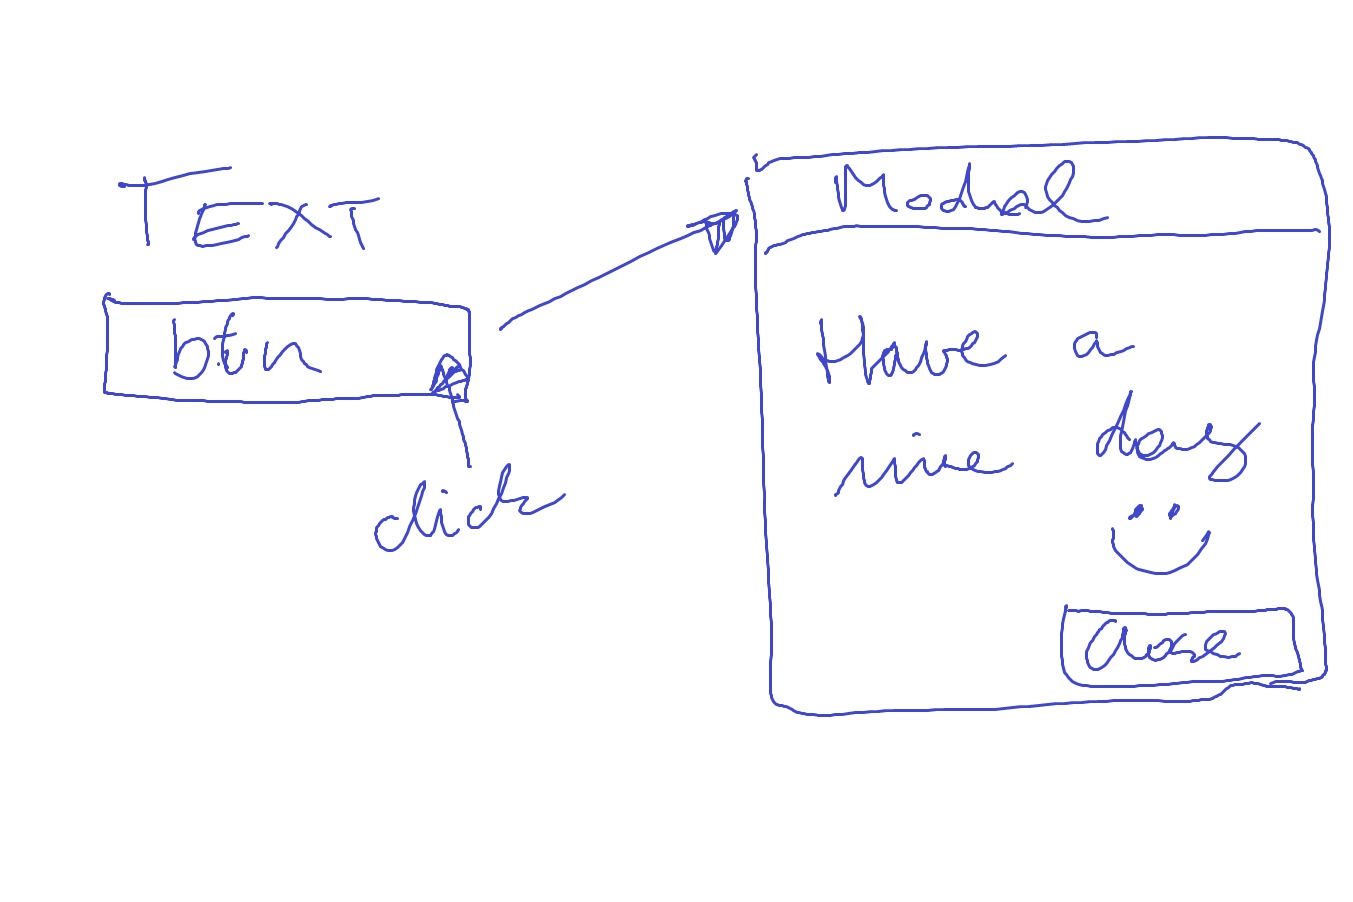 TEXT
btn
click
Modal
Have a
nice day
Close